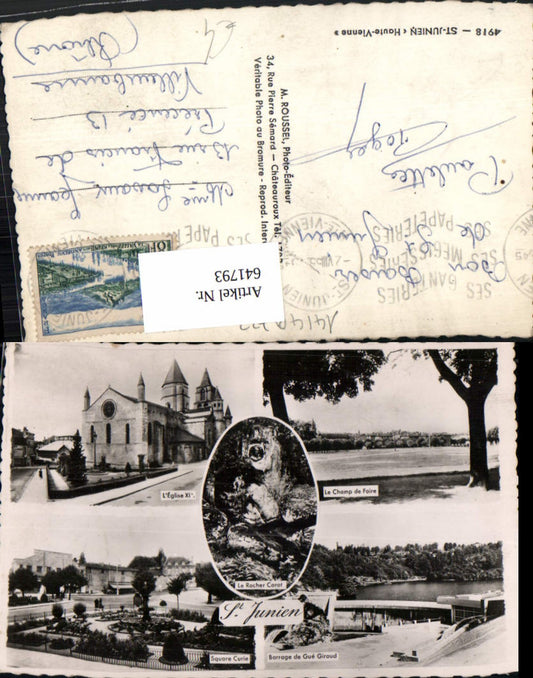 4918 — ST-JUNIEN « Haute-Vienne »
Bon Baiser
de St Junien
M. ROUSSEL, Photo-Éditeur
34, Rue Pierre Sémard — Châteauroux Tél.
Véritable Photo au Bromure - Reprod. Inter
Mme
Jeanne
13 rue Francis de
13
Villeurbanne
(Rhône)
SES GANTERIES
SES MEGISSERIES
SES PAPETERIES
ST-JUNIEN
Artikel Nr.
641793
L'Église XIe.
Le Champ de Foire
Le Rocher Corot
St Junien
Square Curie
Barrage de Gué Giraud